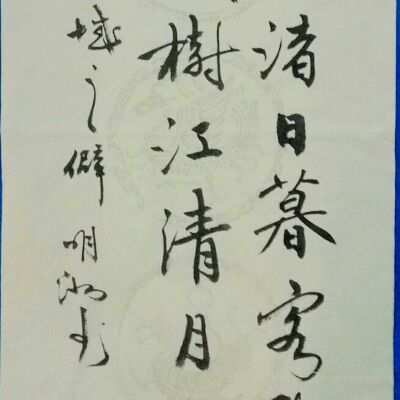 渚日暮客
樹江清月
城之僻明